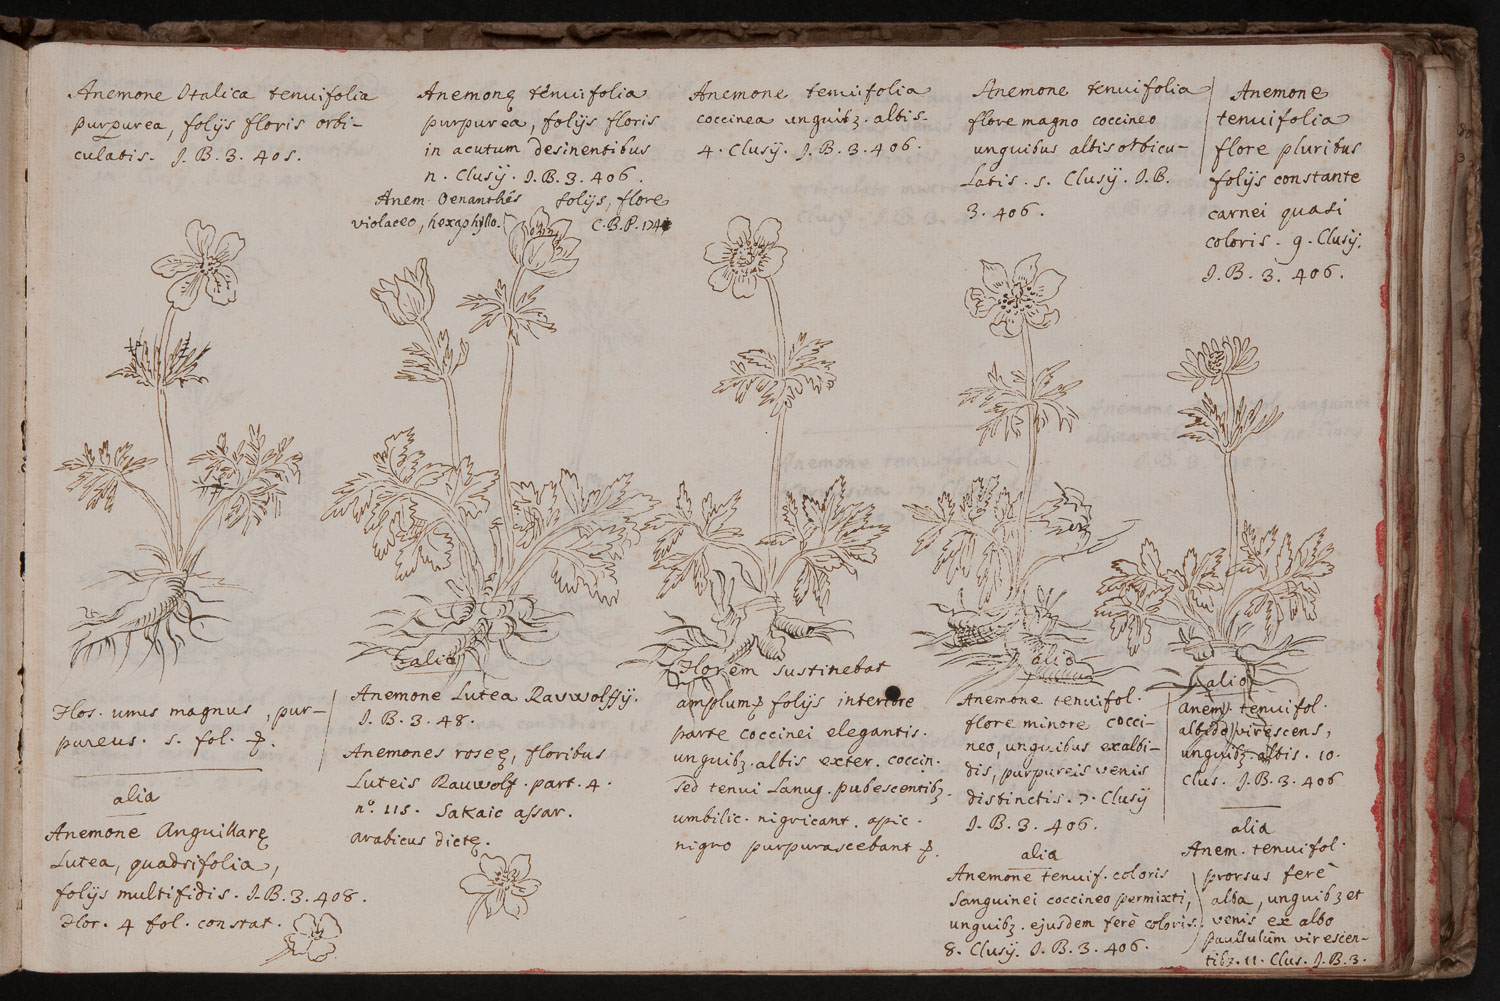 Anemone Italica tenuifolia
purpurea, folijs floris orbi-
culatis. I.B.3. 405.
Anemonę tenuifolia
purpurea, folijs floris
in acutum desinentibus
n. Clusij. I.B.3. 406.
Anem. Oenanthes folijs, flore
violaceo, hexaphyllo. C.B.P. 174
Anemone tenuifolia
coccinea unguibz. albis.
4. Clusij. I.B.3. 406.
Anemone tenuifolia
flore magno coccineo
unguibus albis orbicu-
latis. 5. Clusij. I.B.
3. 406.
Anemone
tenuifolia
flore pluribus
folijs constante
carnei quasi
coloris. 9. Clusij.
I.B. 3. 406.
Flos. unus magnus, pur-
pureus. 5. fol.
alia
Anemone Anguillarę
Lutea, quadrifolia,
folijs multifidis. I.B.3. 408.
Flor. 4 fol. constat.
alia
Anemone Lutea Rauwolffij.
I.B.3. 48.
Anemones roseę, floribus
Luteis Rauwolf. part. 4.
no. 115. Sakaic assar.
arabicus dictę.
Florem sustinebat
amplum folijs interiore
parte coccinei elegantis.
unguibz. albis exter. coccin.
sed tenui Lanug. pubescentibz.
umbilic. nigricant. apic.
nigro purpurascebant
alia
Anemone tenuifol.
flore minore cocci-
neo, unguibus exalbi-
dis, purpureis venis
distinctis. 7. Clusij
I.B. 3. 406.
alia
Anemone tenuif. coloris
Sanguinei coccineo permixti,
unguibz. ejusdem ferè coloris.
8. Clusij. I.B.3. 406.
alia
anem. tenuifol.
albido virescens,
unguibz. albis. 10.
Clus. I.B.3. 406
alia
Anem. tenuifol.
prorsus ferè
alba, unguibz et
venis ex albo
paululum virescen-
tibz. 11. Clus. I.B.3.